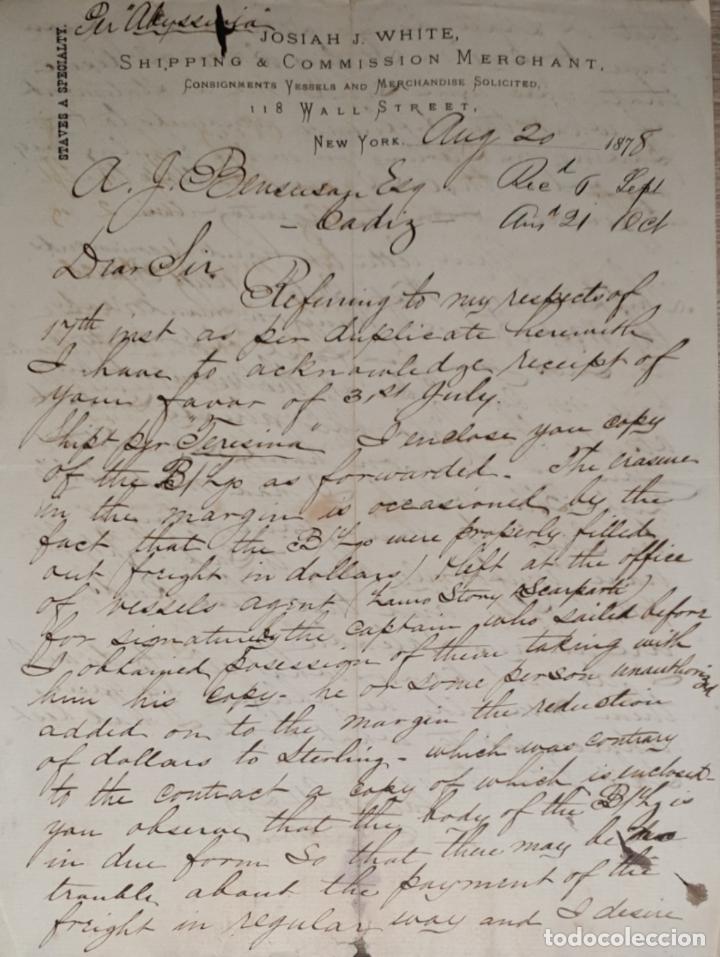 Per "Abyssinia"
STAVES A SPECIALTY.
JOSIAH J. WHITE,
SHIPPING & COMMISSION MERCHANT,
CONSIGNMENTS VESSELS AND MERCHANDISE SOLICITED,
118 WALL STREET,
NEW YORK. Aug 20 1878
A. J. Bensusan Esq Rec'd 6 Sept
- Cadiz - Ans'd 21 Oct
Dear Sir,
Referring to my respects of
17th inst as per duplicate herewith
I have to acknowledge receipt of
your favor of 31st July.
Shipt per "Teresina" I enclose you copy
of the B/Lg as forwarded - The erasure
in the margin is occasioned by the
fact that the B/Lg were properly filled
out freight in dollars) & left at the office
of vessels agent ( Story & Scarpati)
for signature, the captain who sailed before
I obtained posession of them taking with
him his copy - he or some person unauthorized
added on to the margin the reduction
of dollars to Sterling - which was contrary
to the contract a copy of which is enclosed -
you observe that the body of the B/Lg is
in due form So that there may be no
trouble about the payment of the
freight in regular way and I desire
todocoleccion.com